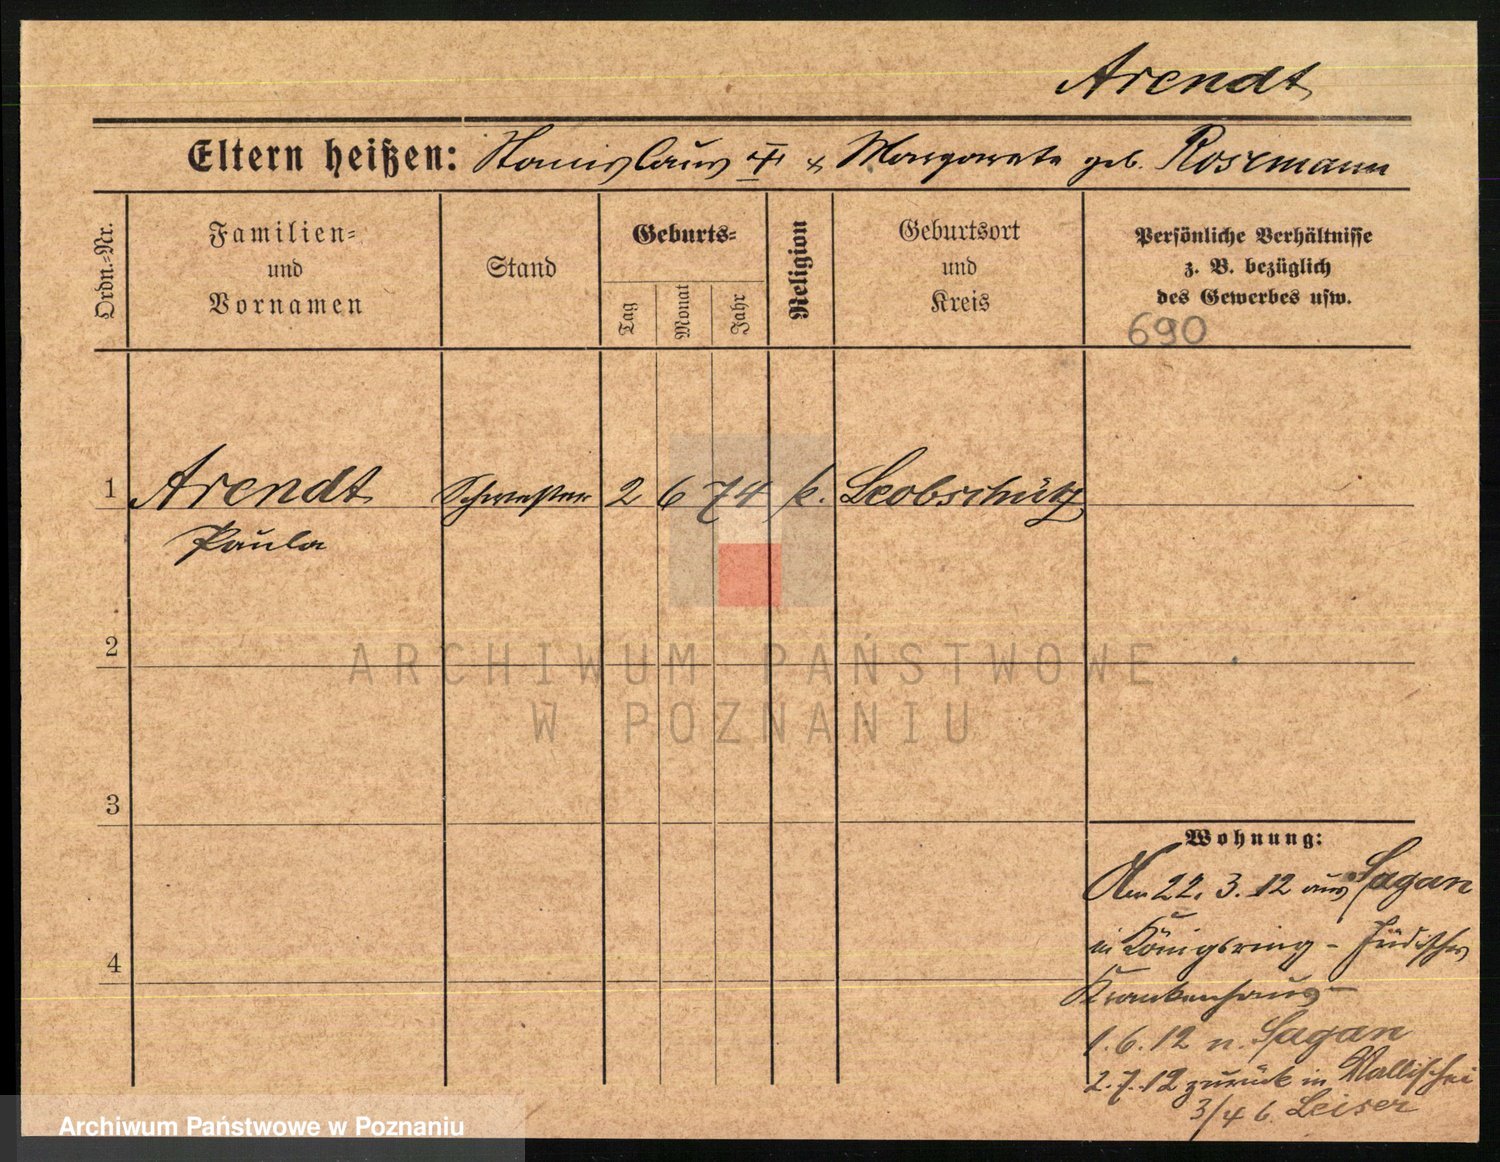 Arendt
Eltern heißen: Stanislaus † & Margarete geb. Rosemann
Ordn.-Nr.
Familien-
und
Vornamen
Stand
Geburts-
Tag
Monat
Jahr
Religion
Geburtsort
und
Kreis
Persönliche Verhältnisse
z. B. bezüglich
des Gewerbes usw.
690
1 Arendt Schwester 2 6 74 k. Leobschütz
Paula
2
3
4
Wohnung:
Am 22. 3. 12 aus Sagan
in Königsring - Jüdisches
Krankenhaus -
1. 6. 12 n. Sagan
2. 7. 12 zurück in Wallischei
3/4 b. Leiser
ARCHIWUM PAŃSTWOWE
W POZNANIU
Archiwum Państwowe w Poznaniu